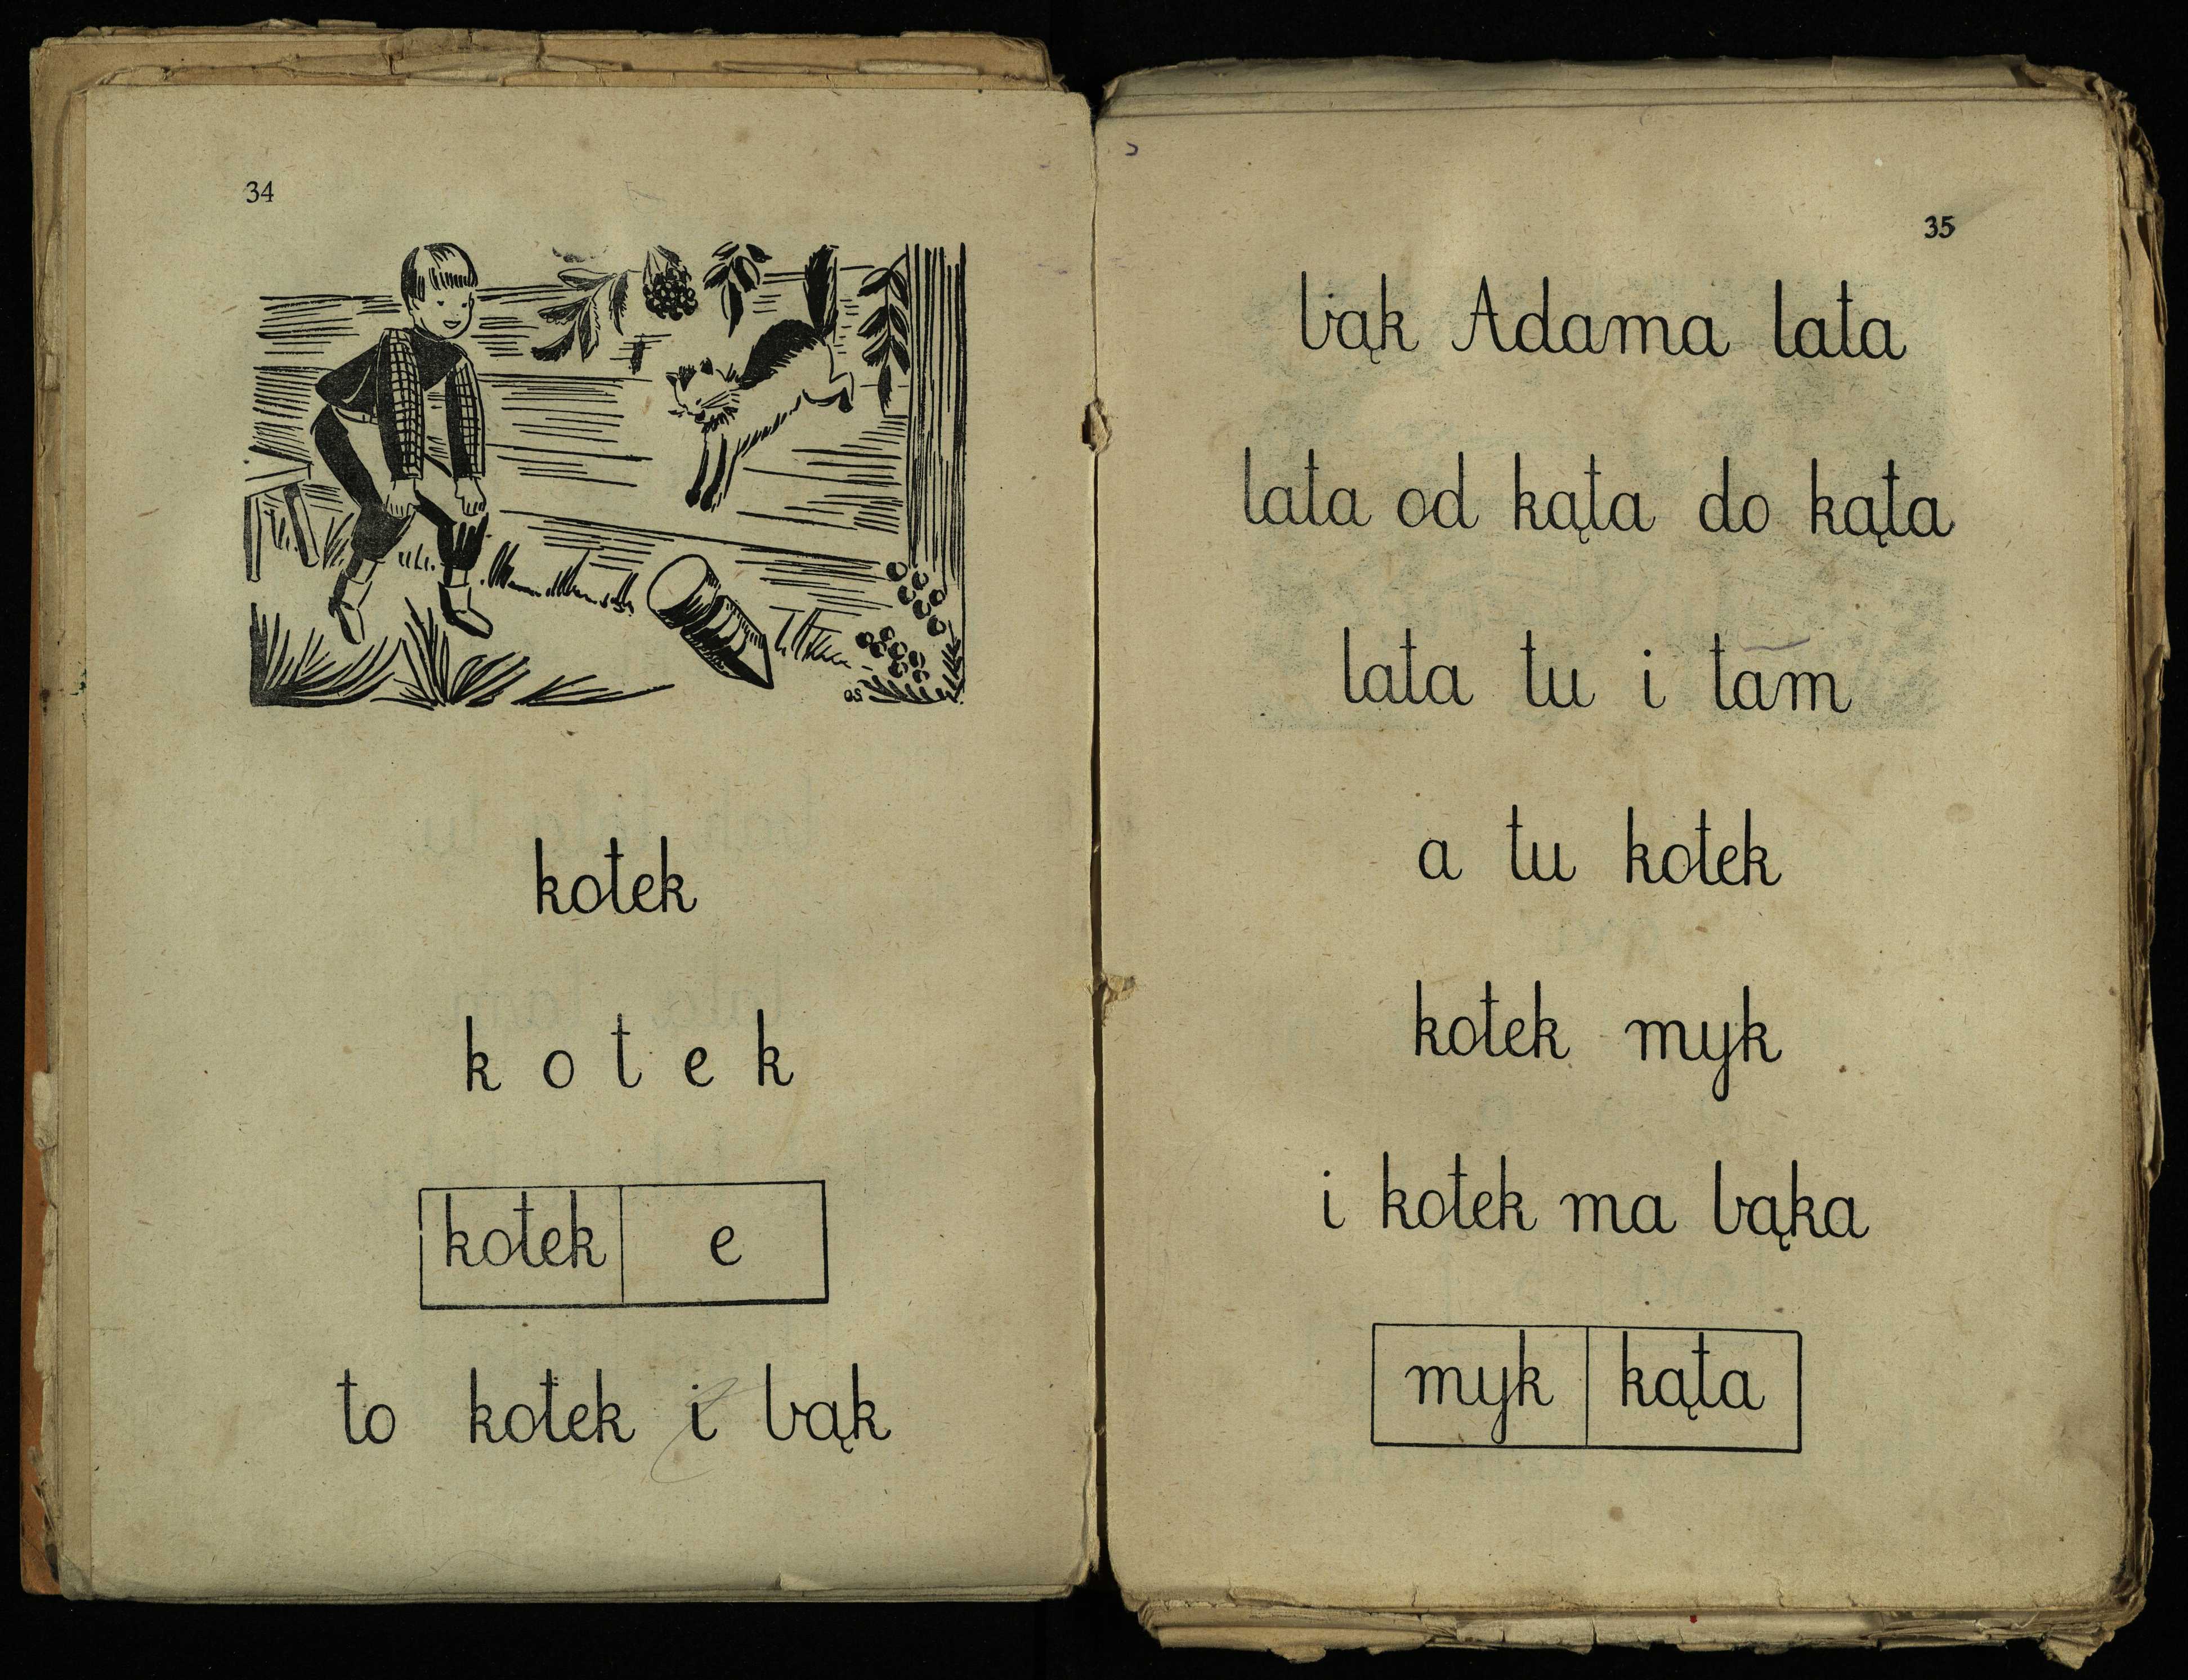 34
kotek
k o t e k
kotek e
to kotek i bąk
35
bąk Adama lata
lata od kąta do kąta
lata tu i tam
a tu kotek
kotek myk
i kotek ma bąka
myk kąta